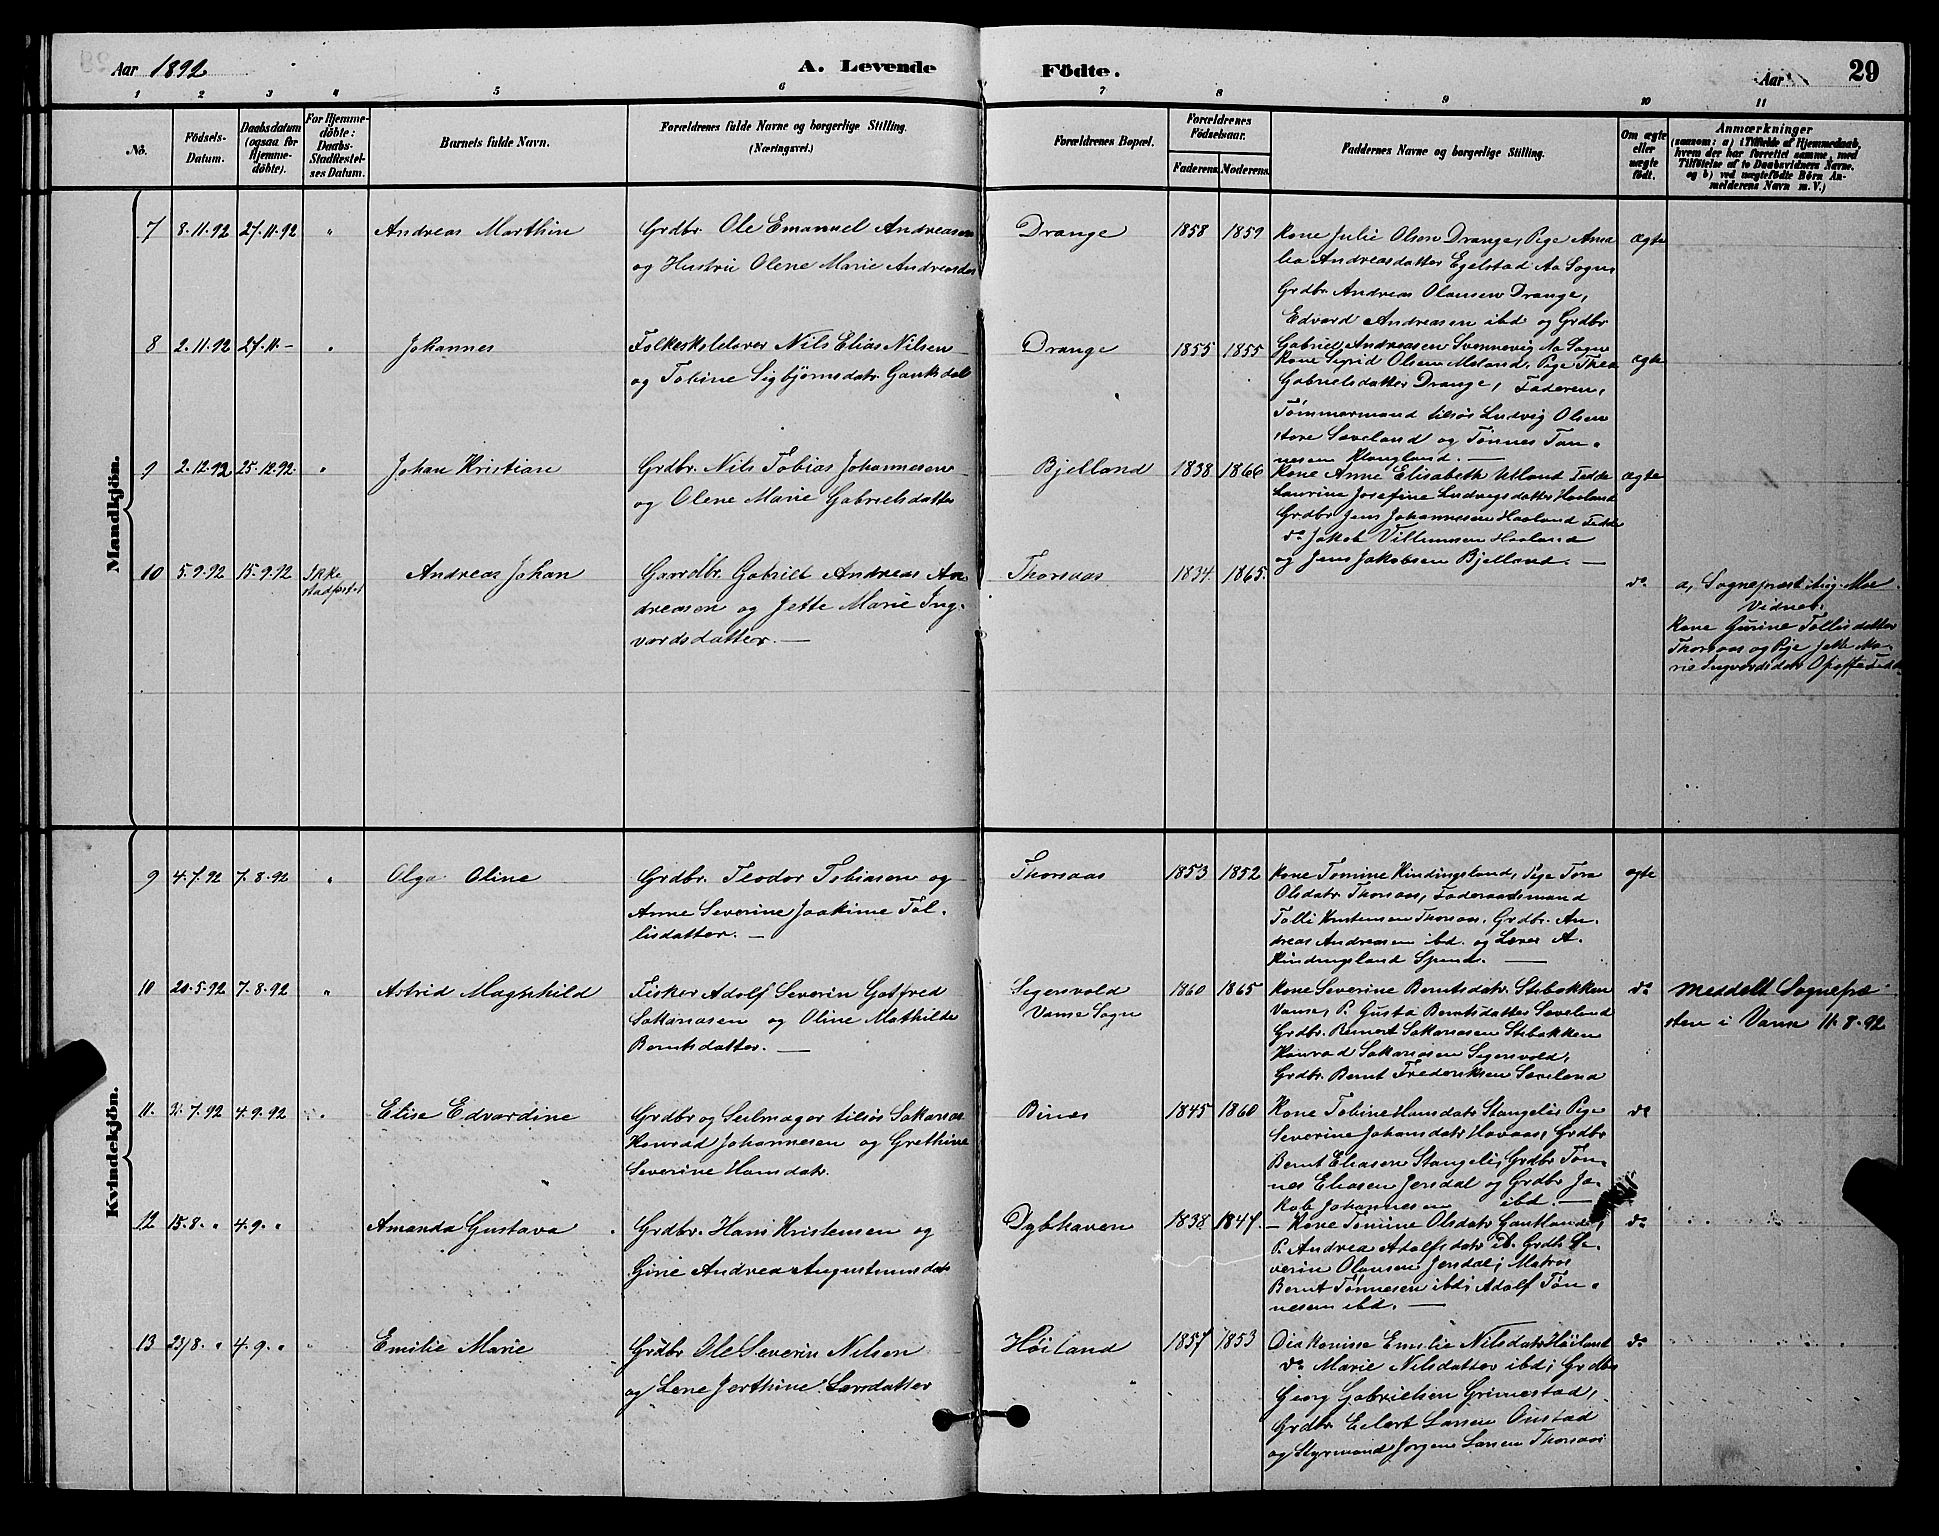 Aar 1892
A. Levende
Födte.
Aar
29
1 2 3 4 5 6 7 8 9 10 11
No.
Födsels-
Datum.
Daabsdatum
(ogsaa for
Hjemme-
döbte).
For Hjemme-
döbte:
Daabs-
Stadfæstel-
ses Datum.
Barnets fulde Navn.
Forældrenes fulde Navne og borgerlige Stilling.
(Næringsvei.)
Forældrenes Bopæl.
Forældrenes
Födselsaar.
Faderens. Moderens.
Faddernes Navne og borgerlige Stilling.
Om ægte
eller
uægte
födt.
Anmærkninger
(saasom: a) i Tilfælde af Hjemmedaab,
hvem der har forrettet samme, med
Tilföielse af to Daabsvidners Navne,
og b) ved uægtefödte Börn An-
melderens Navn m. V.)
Mandkjön.
7 8.11.92 27.11.92 " Andreas Marthin
Grdbr. Ole Emanuel Andreasen
og Hustru Olene Marie Andreasdtr
Drange 1858 1859
Kone Julie Olsen Drange, Pige Ama
lia Andreasdatter Egelstad Aa Sogn,
Grdbr Andreas Olausen Drange,
Edvard Andreasen ibd og Grdbr
Gabriel Andreasen Svennevig Aa Sogn
ægte
8 2.11.92 27.11.– " Johannes
Folkeskolelærer Nils Elias Nilsen
og Tobine Sigbjørnsdatr.
Drange 1855 1855
Kone Sigrid Olsen Meland, Pige Thea
Gabrielsdatter Drange, Faderen,
Tømmermand tilsøs Ludvig Olsen
store Sæveland og Tønnes Tøn-
nesen
ægte
9 2.12.92 25.12.92. " Johan Kristian
Grdbr. Nils Tobias Johannesen
og Olene Marie Gabrielsdatter
Bjelland 1838 1866
Kone Anne Elisabeth Utland Fedde
Laurine Josefine Ludvigsdatter Haaland
Grdbr Jens Johannesen Haaland Fedde
do Jakob Villumsen Haaland
og Jens Jakobsen Bjelland. —
ægte
10 5.9.92 15.9.92 Ikke
stadfæstet
Andreas Johan
Gaardbr. Gabriel Andreas An-
dreasen og Jette Marie Ing-
vardsdatter. —
Thorsaas 1834. 1865.
do
a, Sognepræst Aug. Moe
Vidner:
Kone Gurine Tollisdatter
Thorsaas og Pige Jette Ma-
rie Ingvardsdatr
Kvindekjön.
9 4.7.92 7.8.92 " Olga Oline
Grdbr. Teodor Tobiasen og
Anne Severine Joakime Tol-
lisdatter. —
Thorsaas 1853 1852
Kone Tomine Kindingsland, Pige Tora
Olsdatr Thorsaas, Føderaadsmand
Tolli Kristensen Thorsaas, Grdbr. An-
dreas Andreasen ibd. og Lærer A.
Kindingsland Spind. —
ægte
10 20.5.92 7.8.92 " Astrid Maghhild
Fisker Adolf Severin Gotfred
Sakariasen og Oline Mathilde
Berntsdatter. —
Segersvold
Vanse Sogn
1860 1865
Kone Severine Berntsdatr. Stibakken
Vanse, P. Gusta Berntsdatter Sæveland
Grdbr. Reinert Sakariasen Stibakken
Konrad Sakariasen Segersvold,
Grdbr. Bernt Frederiksen Sæveland
do
Meddelt Sognepræ
sten i Vanse 11.8.92
11. 31.7.92 4.9.92 " Elise Edvardine
Grdbr og Seilmager tilsøs Sakarias
Konrad Johannesen og Grethine
Severine Hansdatr.
Binæs 1845 1860
Kone Tobine Hansdatr Stangeli, Pige
Severine Johansdatr Havaas, Grdbr
Bernt Eliasen Stangeli, Grdbr Tøn-
nes Eliasen Jersdal og Grdbr Ja-
kob Johannesen ibd. —
do
12 15.8. " 4.9. " Amanda Gustava
Grdbr. Hans Kristensen og
Gine Andrea Augustinusdatr
Dybhaven 1838 1847.
– Kone Tomine Olsdatr Gautland,
P. Andrea Adolfsdatr ib. Grdbr Se-
verin Olausen Jersdal, Matros
Bernt Tønnesen ibd, Adolf Tøn-
nesen ibd. —
do
13 23/8. " 4.9. " " Emilie Marie
Grdbr Ole Severin Nilsen
og Lene Jerthine Larsdatter
Høiland 1857 1853
Diakonisse Emilie Nilsdatr Høiland
do Marie Nilsdatter ibd, Grdbr
Georg Gabrielsen Grimestad,
Grdbr Eilert Larsen Onstad
og Styrmand Jørgen Larsen Thorsaas
do